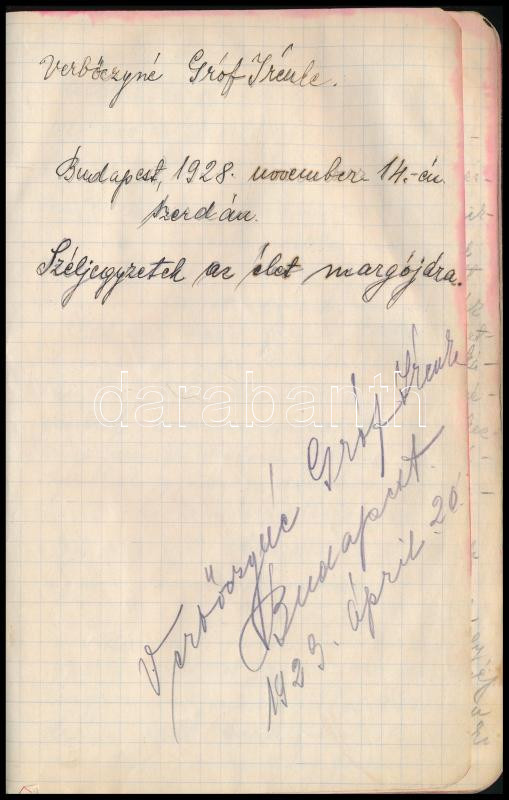 Verbőczyné Gróf Irénke.
Budapest, 1928. november 14.-én
szerdán.
Széljegyzetek az élet margójára.
darabanth
Verbőczyné Gróf Irénke
Budapest.
1929. április 20.